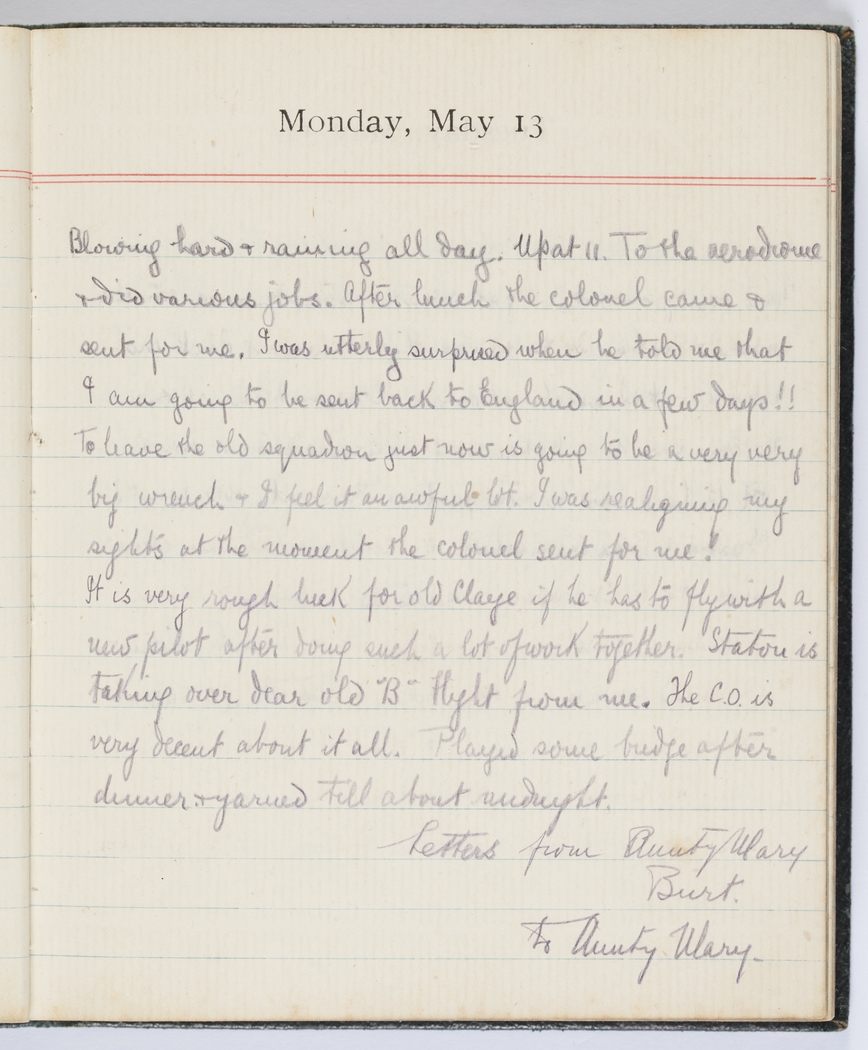 Monday, May 13
Blowing hard & raining all day. Up at 11. To the aerodrome
& did various jobs. After lunch the colonel came &
sent for me. I was utterly surprised when he told me that
I am going to be sent back to England in a few days!!
To leave the old squadron just now is going to be a very very
big wrench & I feel it an awful lot. I was realigning my
sights at the moment the colonel sent for me!
It is very rough luck for old Claye if he has to fly with a
new pilot after doing such a lot of work together. Staton is
taking over dear old "B" flight from me. The C.O. is
very decent about it all. Played some bridge after
dinner & yarned till about midnight.
Letters from Aunty Mary
Burt.
to Aunty Mary.